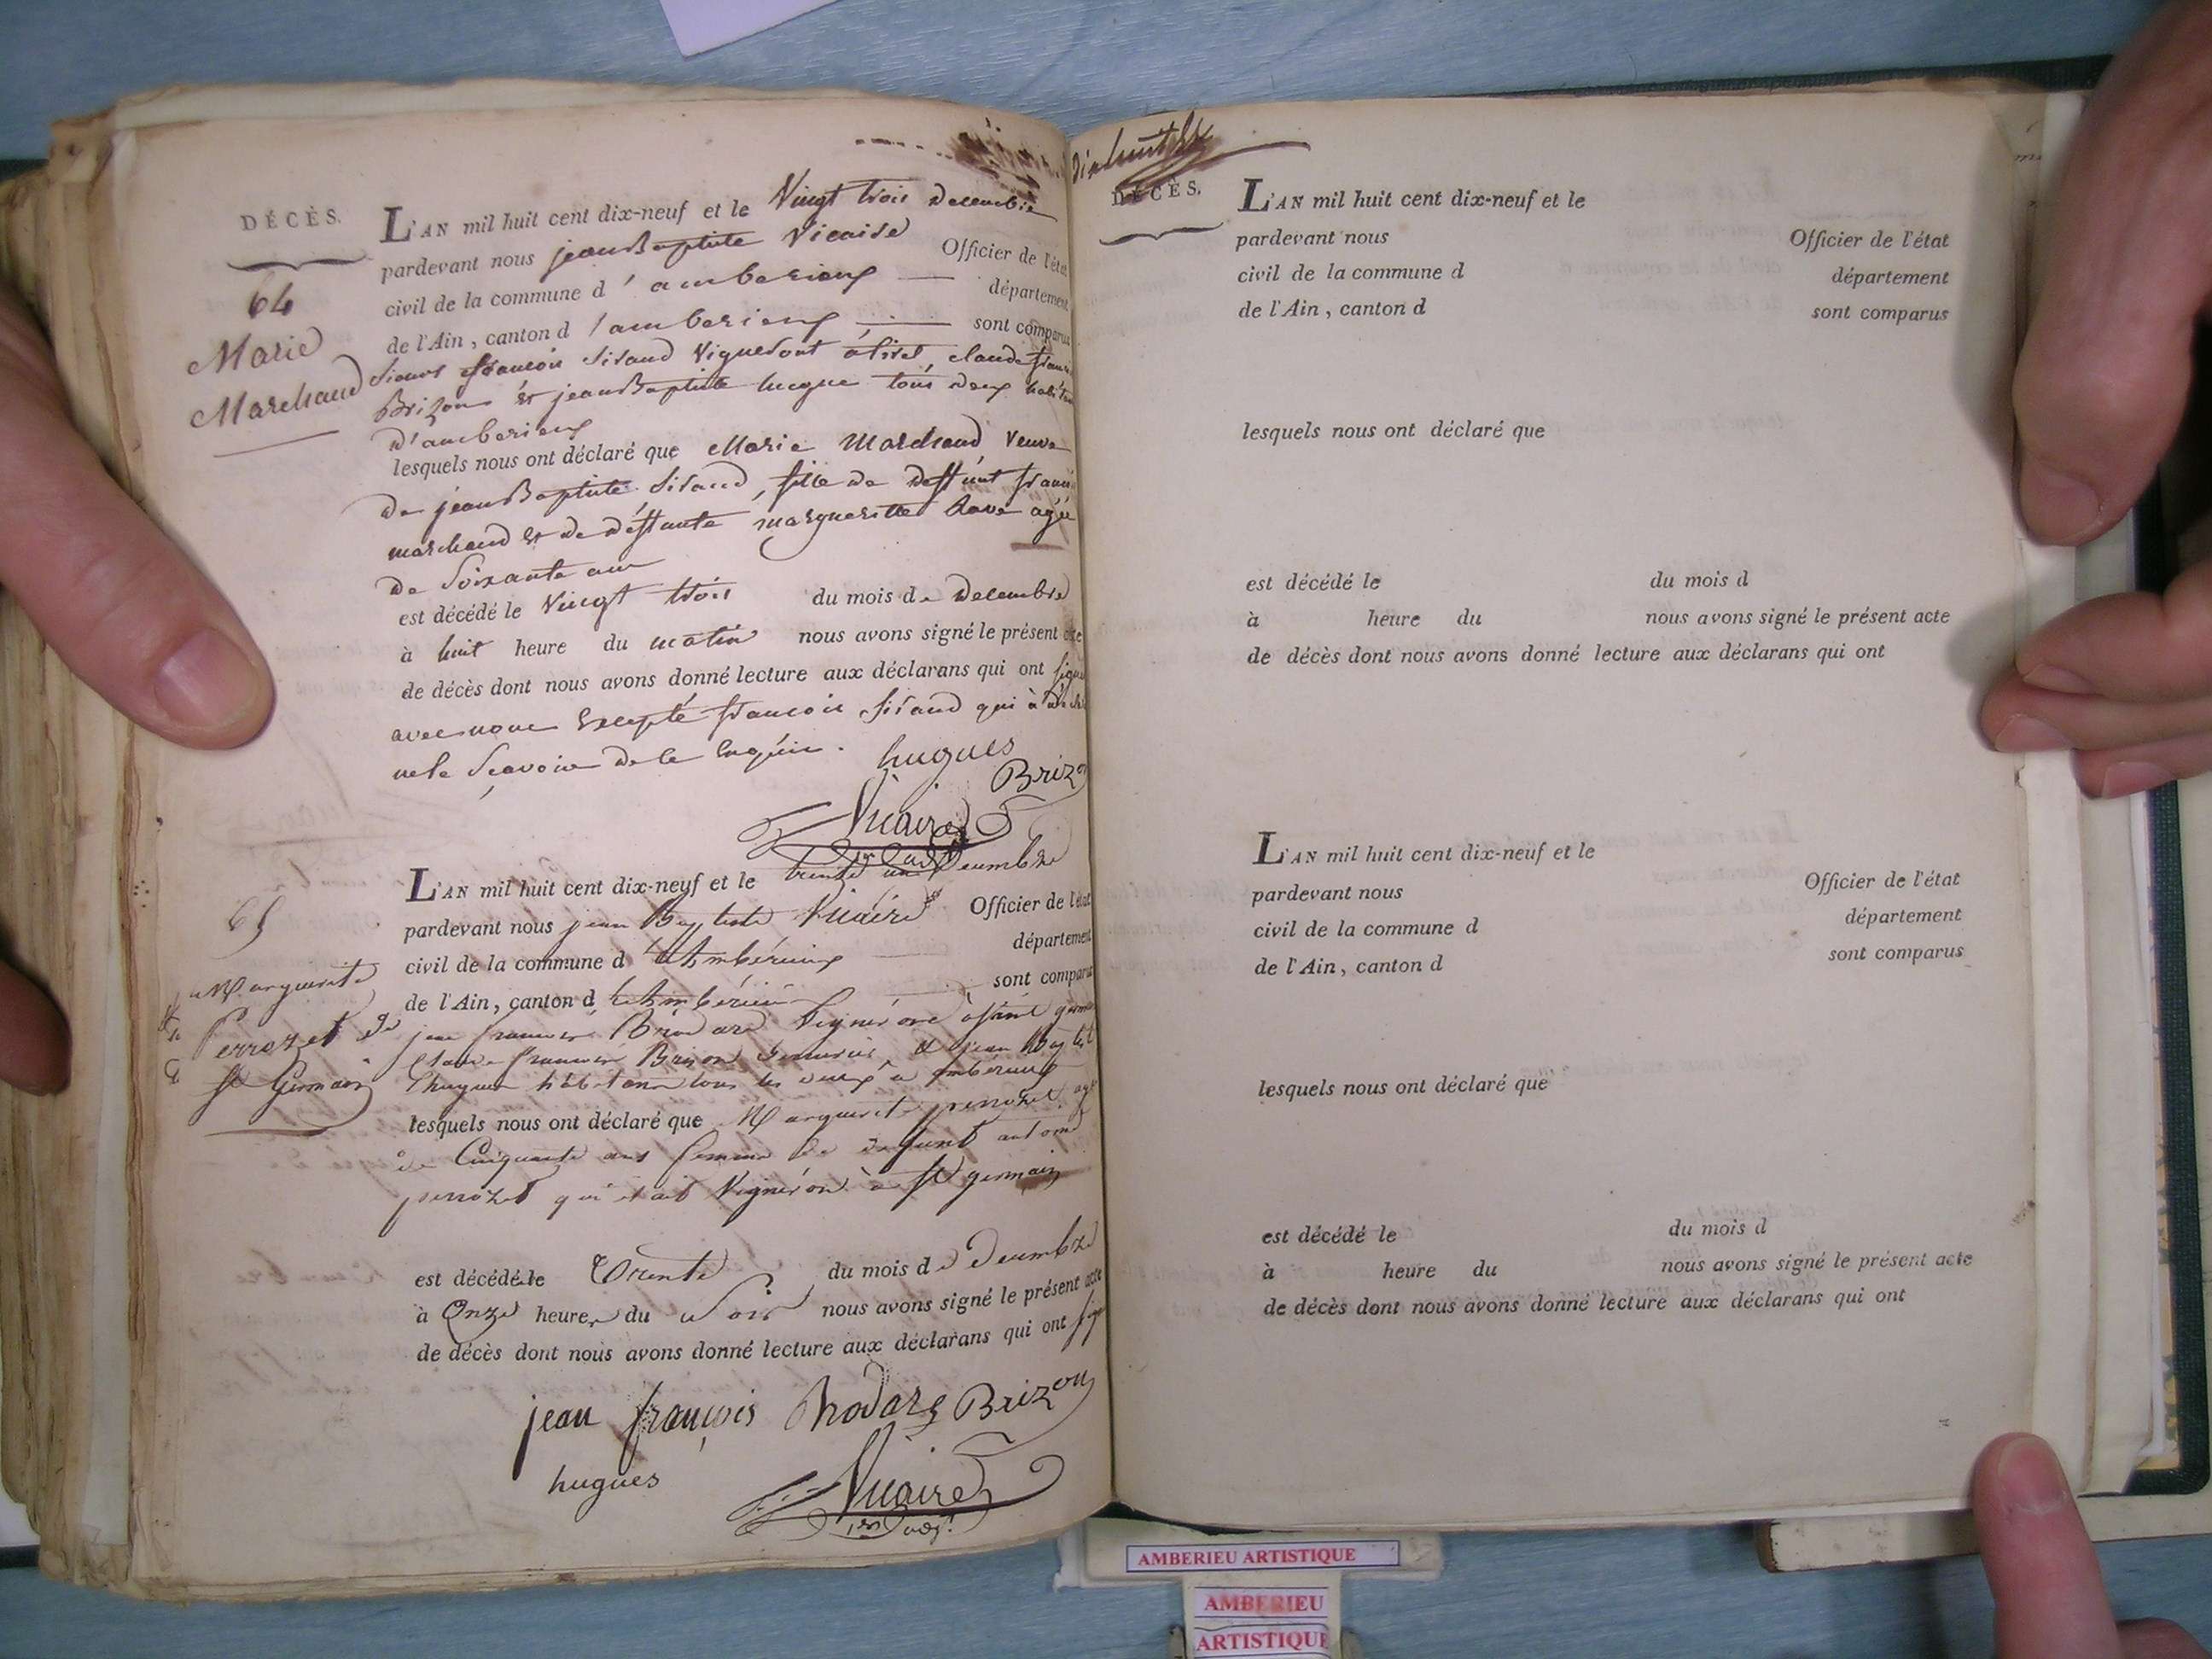 DÉCÈS.
64
Marie
Marchand
L'AN mil huit cent dix-neuf et le Vingt trois decembre
pardevant nous jean Baptiste Vicaire Officier de l'état
civil de la commune d'amberieux département
de l'Ain, canton d'amberieux sont comparus
Sieurs francois Siraud Vigneront claude
Brizon et jean Baptiste hugue tous deux
d'amberieux
lesquels nous ont déclaré que Marie Marchand Veuve
de jean Baptiste Siraud, fille de deffunt
marchand et de deffunte margueritte agée
de Soixante ans
est décédé le Vingt trois du mois de decembre
à huit heure du matin nous avons signé le présent acte
de décès dont nous avons donné lecture aux déclarans qui ont signé
avec nous Excepté francois Siraud qui à
ne le Sçavoir de le
hugues
Brizon
Vicaire
L'AN mil huit cent dix-neuf et le trente un Decembre
65
pardevant nous jean Baptiste Vicaire Officier de l'état
civil de la commune d'Ambérieux département
de l'Ain, canton d'Ambérieux sont comparus
Marguerite
Perrozet de
St Germain
jean francois Vigneron à Saint germain
Claude francois Brizon et jean Baptiste
hugues habitans tous les deux à ambérieux
lesquels nous ont déclaré que Marguerite perrozet agée
de Cinquante ans femme de defunt antoine
perrozet qui était Vigneron à St germain
est décédé le Trente du mois de Decembre
à Onze heures du Soir nous avons signé le présent acte
de décès dont nous avons donné lecture aux déclarans qui ont signé
jean françois Brizon
hugues
Vicaire
1er adj.t
DÉCÈS.
L'AN mil huit cent dix-neuf et le
pardevant nous Officier de l'état
civil de la commune d département
de l'Ain, canton d sont comparus
lesquels nous ont déclaré que
est décédé le du mois d
à heure du nous avons signé le présent acte
de décès dont nous avons donné lecture aux déclarans qui ont
L'AN mil huit cent dix-neuf et le
pardevant nous Officier de l'état
civil de la commune d département
de l'Ain, canton d sont comparus
lesquels nous ont déclaré que
est décédé le du mois d
à heure du nous avons signé le présent acte
de décès dont nous avons donné lecture aux déclarans qui ont
AMBERIEU ARTISTIQUE
AMBERIEU
ARTISTIQUE